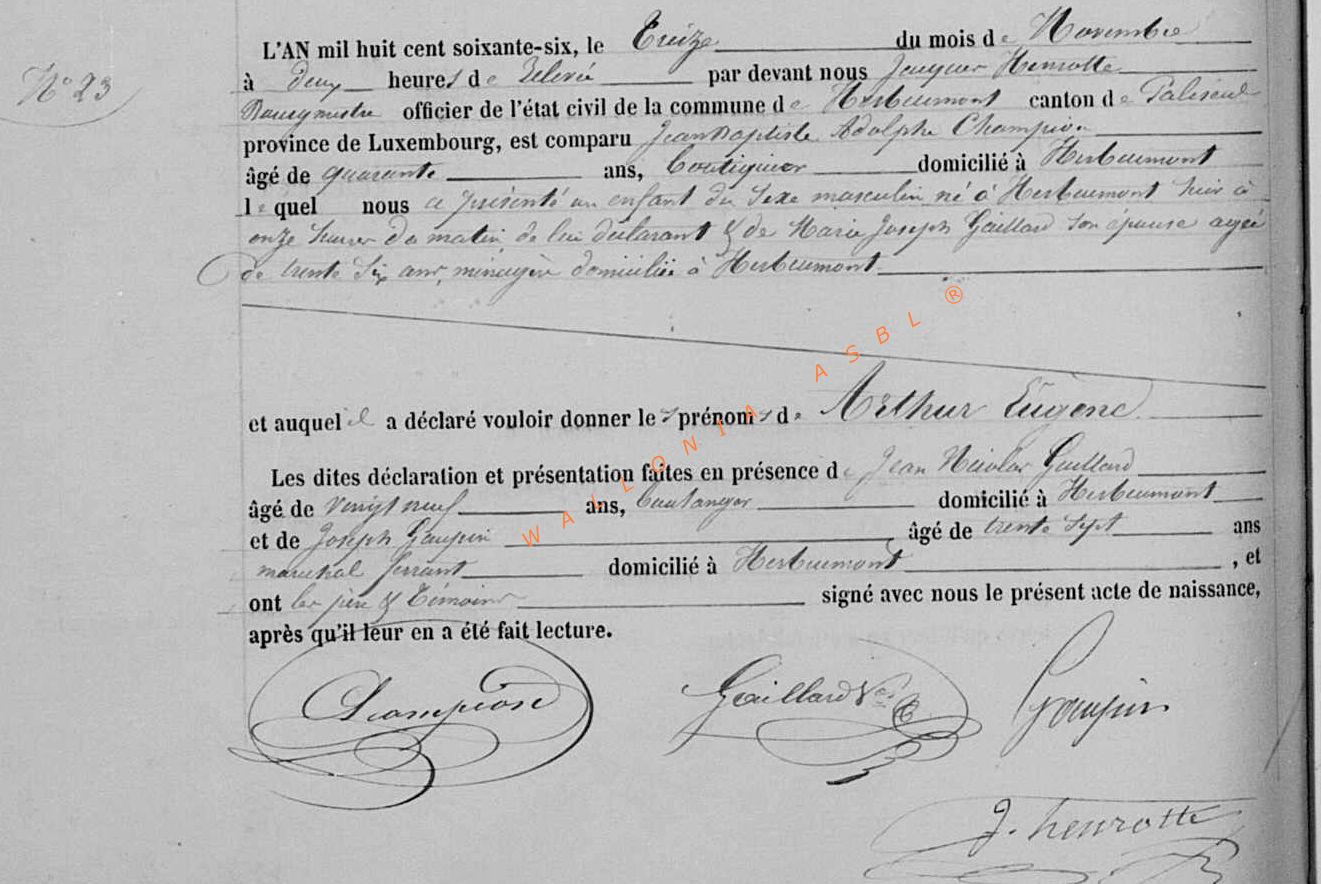 N° 23
L'AN mil huit cent soixante-six, le Treize du mois de Novembre
à deux heures de Relevée par devant nous Jacques Henrotte
Bourgmestre officier de l'état civil de la commune de Herbeumont canton de Paliseul
province de Luxembourg, est comparu Jean Baptiste Adolphe Champion
âgé de quarante ans, Boutiquier domicilié à Herbeumont
lequel nous a présenté un enfant du sexe masculin né à Herbeumont hier à
onze heures du matin de lui déclarant & de Marie Joseph Gaillard son épouse agée
de trente six ans, ménagère domiciliée à Herbeumont
et auquel il a déclaré vouloir donner les prénoms de Arthur Eugène
Les dites déclaration et présentation faites en présence de Jean Nicolas Gaillard
âgé de vingt neuf ans, boulanger domicilié à Herbeumont
et de Joseph Goupin âgé de trente sept ans
maréchal ferrant domicilié à Herbeumont, et
ont les père & Témoins signé avec nous le présent acte de naissance,
après qu'il leur en a été fait lecture.
Champion Gaillard Goupin
J. henrotte
WALLONIA ASBL ®